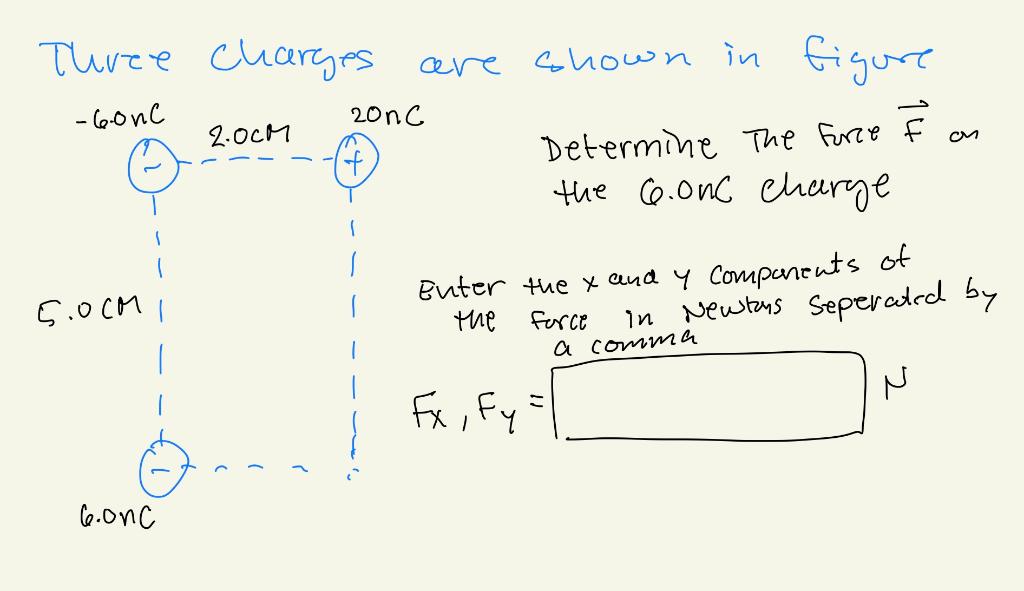 Three charges are shown in figure
-6.0nC
20nC
2.0cM
Determine The Force F on
the 6.0nC charge
5.0CM
Enter the x and y components of
the force in Newtons seperated by
a comma
Fx, Fy = N
6.0nC